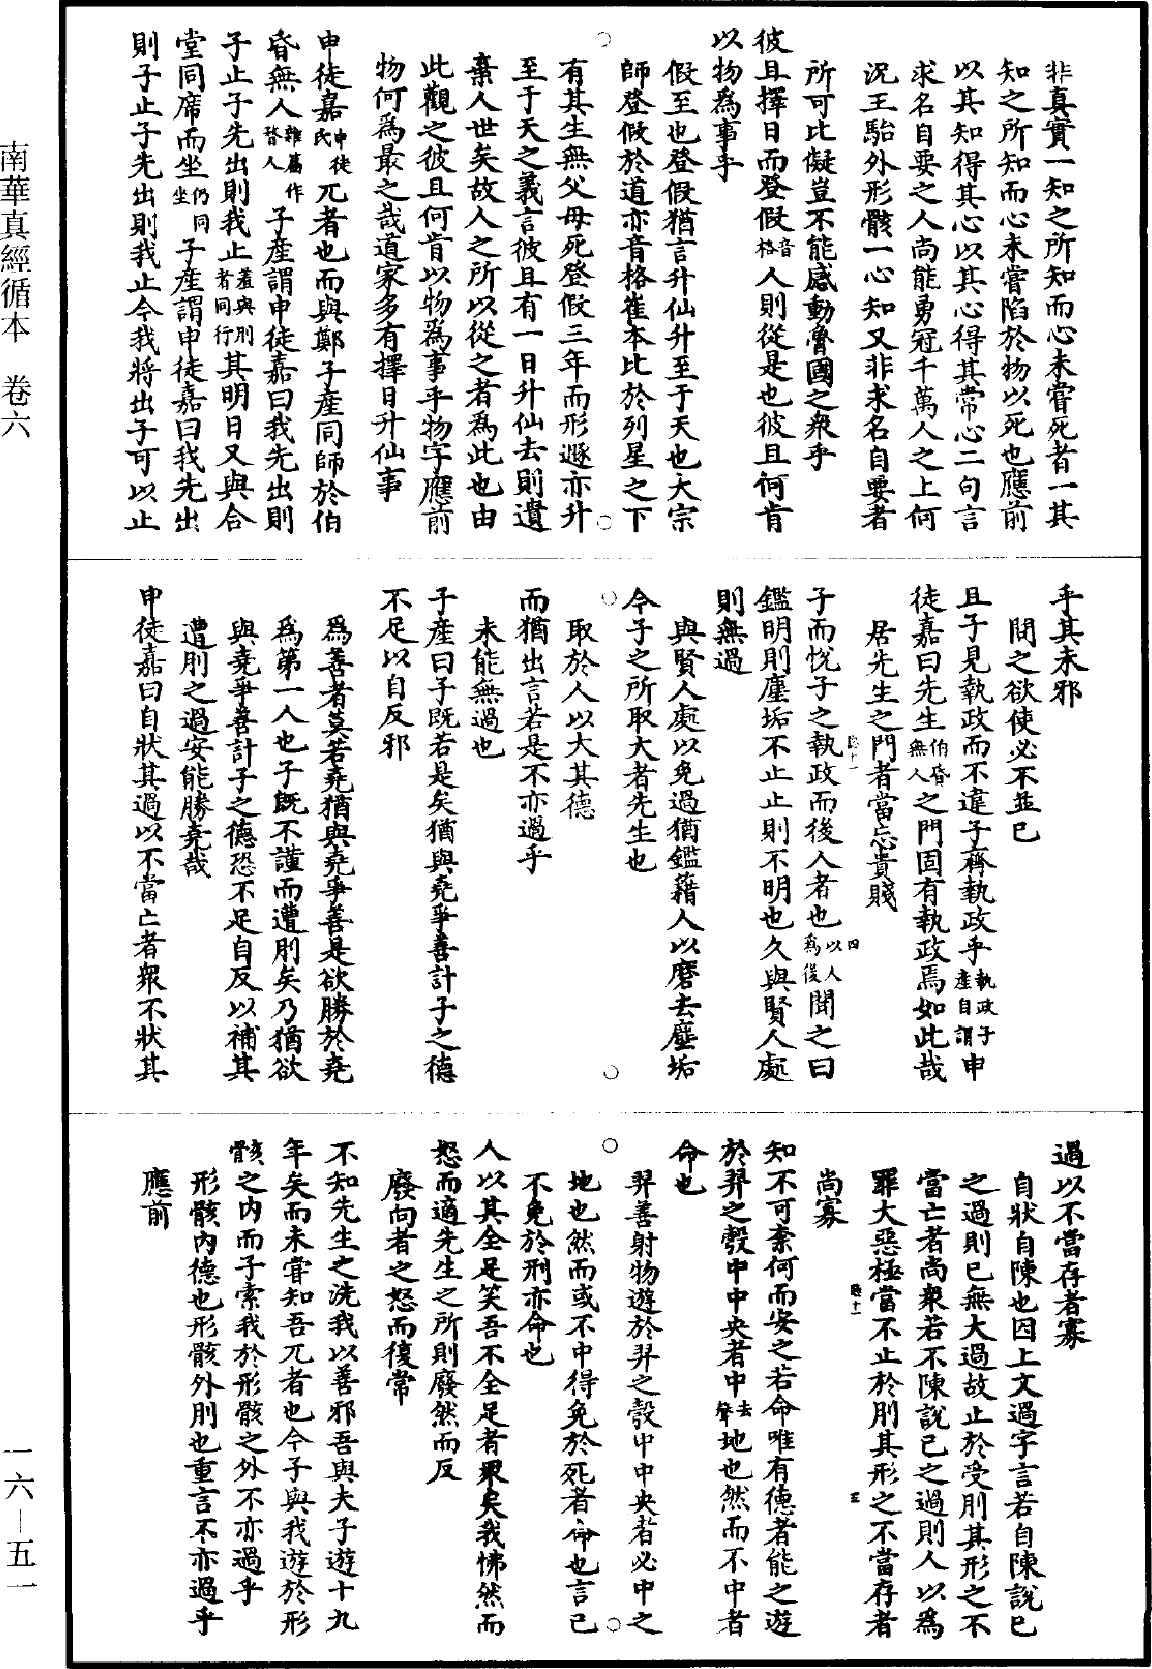 非真實一知之所知而心未嘗死者一其
知之所知而心未嘗陷於物以死也應前
以其知得其心以其心得其常心二句言
求名自要之人尚能勇冠千萬人之上何
況王駘外形骸一心知又非求名自要者
所可比儗豈不能感動魯國之衆乎
彼且擇日而登假音格人則從是也彼且何肯
以物爲事乎
假至也登假猶言升仙升至于天也大宗
師登假於道亦音格崔本比於列星之下
有其生無父母死登假三年而形遯亦升
至于天之義言彼且有一日升仙去則遺
棄人世矣故人之所以從之者爲此也由
此觀之彼且何肯以物爲事乎物字應前
物何爲最之哉道家多有擇日升仙事
申徒嘉申徒氏兀者也而與鄭子產同師於伯
昏無人雜篇作瞀人子產謂申徒嘉曰我先出則
子止子先出則我止羞與刖者同行其明日又與合
堂同席而坐仍同坐子產謂申徒嘉曰我先出
則子止子先出則我止今我將出子可以止
乎其未邪
問之欲使必不並已
且子見執政而不違子齊執政乎執政子產自謂申
徒嘉曰先生伯昏無人之門固有執政焉如此哉
居先生之門者當忘貴賤
子而悅子之執政而後人者也以人爲後聞之曰
鑑明則塵垢不止止則不明也久與賢人處
則無過
與賢人處以免過猶鑑籍人以磨去塵垢
今子之所取大者先生也
取於人以大其德
而猶出言若是不亦過乎
未能無過也
子產曰子既若是矣猶與堯爭善計子之德
不足以自反邪
爲善者莫若堯猶與堯爭善是欲勝於堯
爲第一人也子既不謹而遭刖矣乃猶欲
與堯爭善計子之德恐不足自反以補其
遭刖之過安能勝堯哉
申徒嘉曰自狀其過以不當亡者衆不狀其
過以不當存者寡
自狀自陳也因上文過字言若自陳說已
之過則已無大過故止於受刖其形之不
當亡者尚衆若不陳說已之過則人以爲
罪大惡極當不止於刖其形之不當存者
尚寡
知不可柰何而安之若命唯有德者能之遊
於羿之彀中中央者中去聲地也然而不中者
命也
羿善射物遊於羿之彀中中央者必中之
地也然而或不中得免於死者命也言已
不免於刑亦命也
人以其全足笑吾不全足者衆矣我怫然而
怒而適先生之所則廢然而反
廢向者之怒而復常
不知先生之洗我以善邪吾與夫子遊十九
年矣而未嘗知吾兀者也今子與我遊於形
骸之内而子索我於形骸之外不亦過乎
形骸內德也形骸外刖也重言不亦過乎
應前
四
五
南華真經循本 卷六
一六—五一